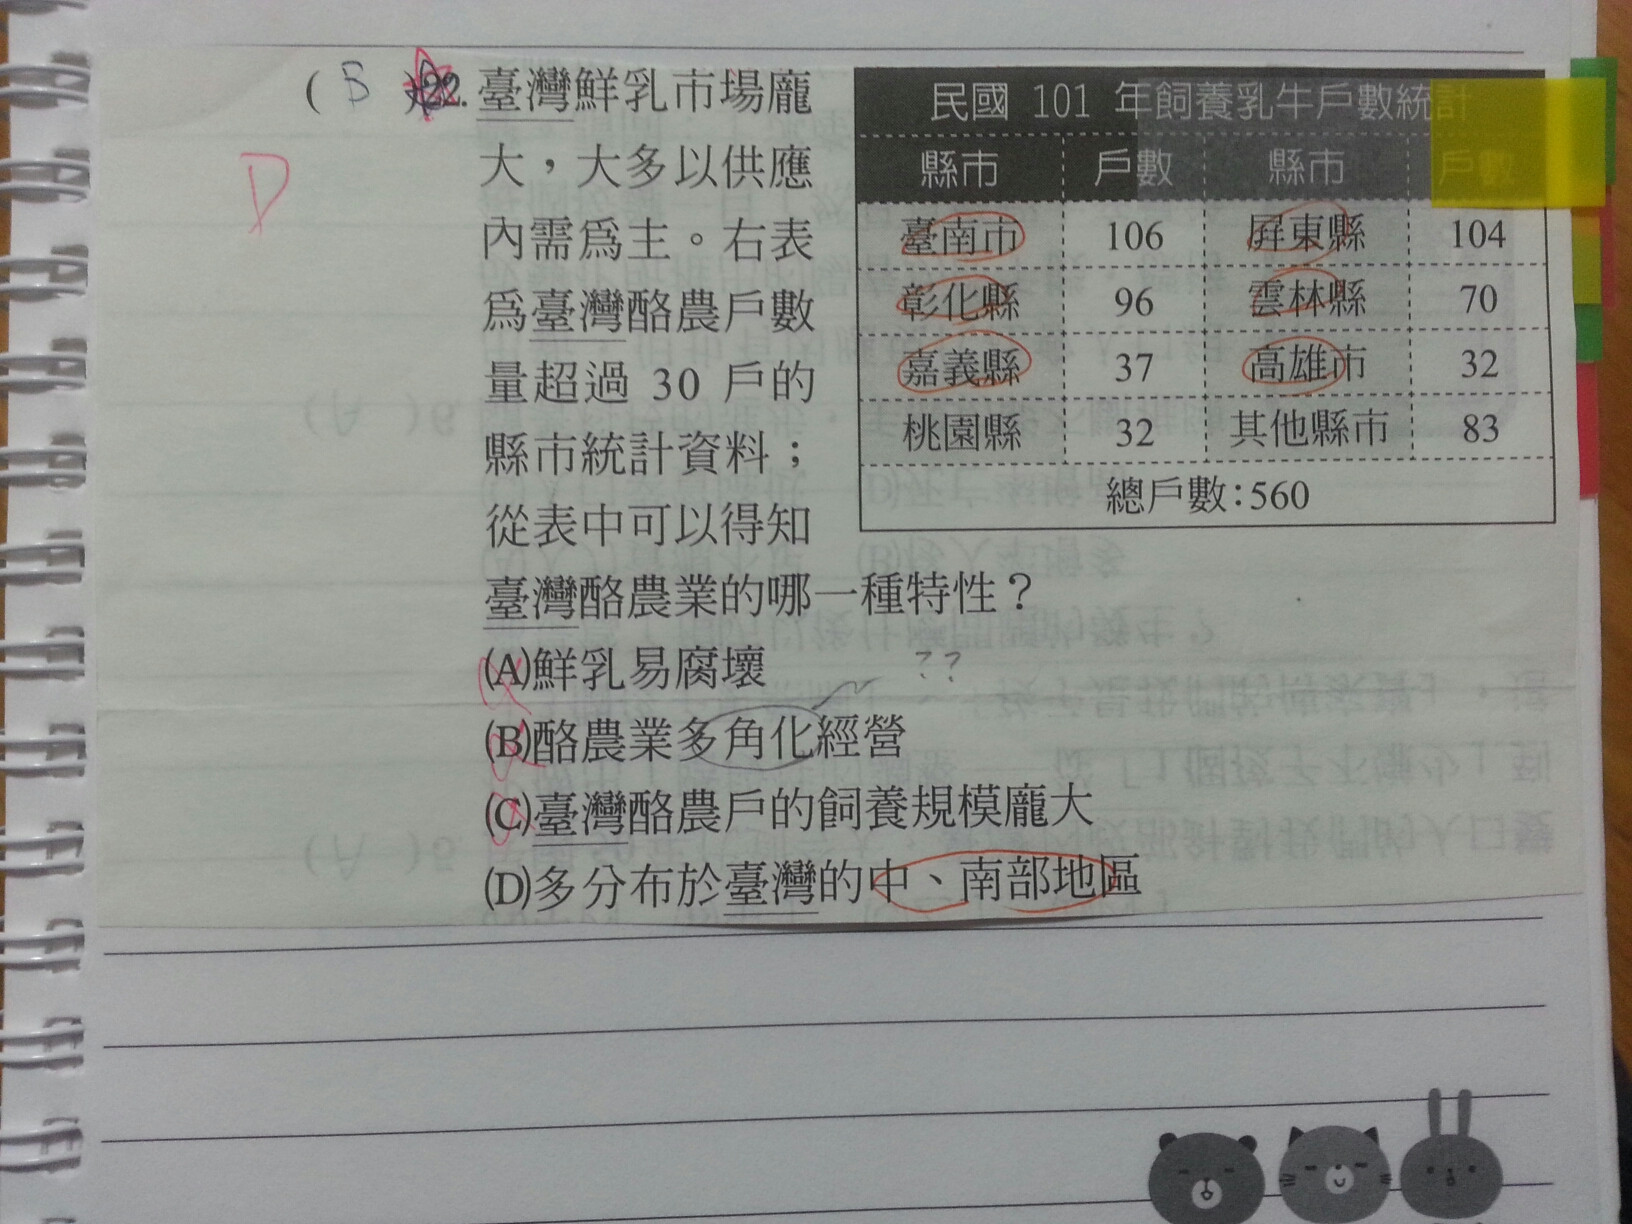 ( B )22.臺灣鮮乳市場龐
大，大多以供應
內需為主。右表
為臺灣酪農戶數
量超過 30 戶的
縣市統計資料；
從表中可以得知
臺灣酪農業的哪一種特性？
(A)鮮乳易腐壞
??
(B)酪農業多角化經營
(C)臺灣酪農戶的飼養規模龐大
(D)多分布於臺灣的中、南部地區
D
民國 101 年飼養乳牛戶數統計
縣市 戶數 縣市 戶數
臺南市 106 屏東縣 104
彰化縣 96 雲林縣 70
嘉義縣 37 高雄市 32
桃園縣 32 其他縣市 83
總戶數：560